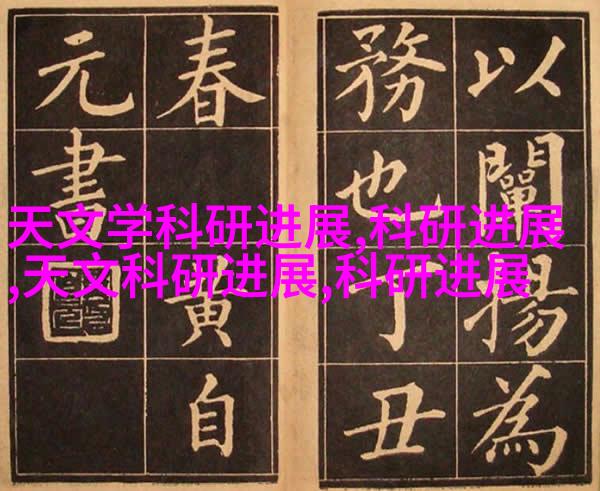 以闡揚為
務也丁丑
春 黄自
元書
天文学科研进展,科研进展
,天文科研进展,科研进展